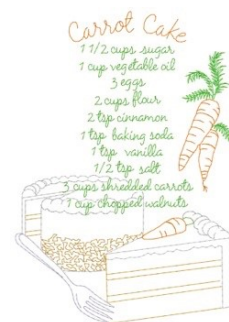 Carrot Cake
1 1/2 cups sugar
1 cup vegetable oil
3 eggs
2 cups flour
2 tsp cinnamon
1 tsp baking soda
1 tsp vanilla
1/2 tsp salt
3 cups shredded carrots
1 cup chopped walnuts